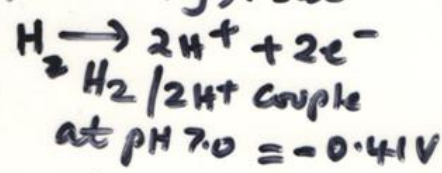 H₂ ⟶ 2H⁺ + 2e⁻
H2 / 2H+ couple
at pH 7.0 = -0.41V